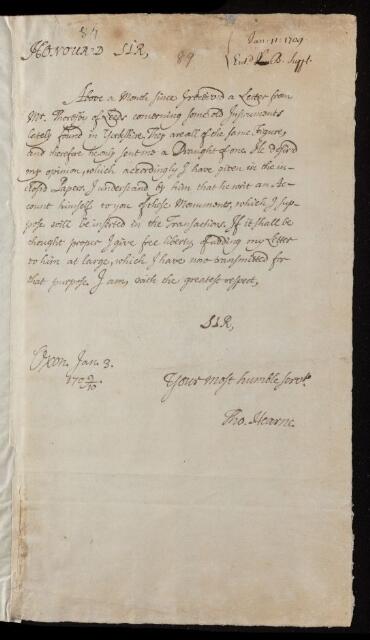 87
Jan: 11: 1709
HONOUR'D SIR,
89
Ent'd L. B. Suppl.
Above a Month since I receiv'd a Letter from
Mr. Thoresby of Leeds concerning some old Instruments
lately found in Yorkshire. They are all of the same Figure,
and therefore he only sent me a Draught of one. He desir'd
my opinion, which accordingly I have given in the in-
clos'd Papers. I understand by him that he writ an Ac-
count himself to you of these Monuments, which I sup-
pose will be inserted in the Transactions. If it shall be
thought proper I give free liberty of adding my Letter
to him at large, which I have now transmitted for
that purpose. I am, with the greatest respect,
SIR,
Oxon. Jan. 3.
17 09/10.
Your most humble servt.
Tho. Hearne.